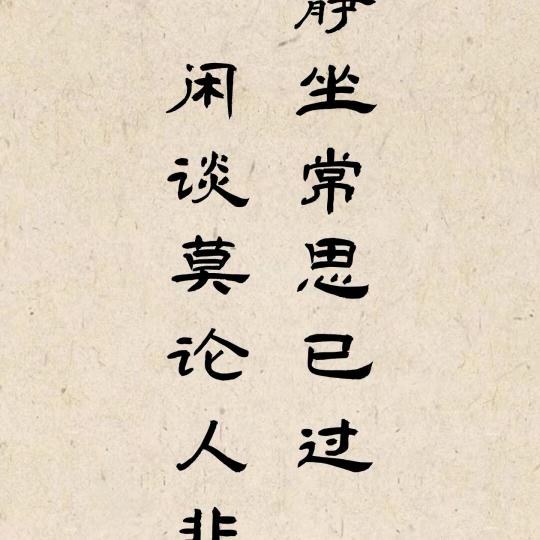 静坐常思已过
闲谈莫论人非